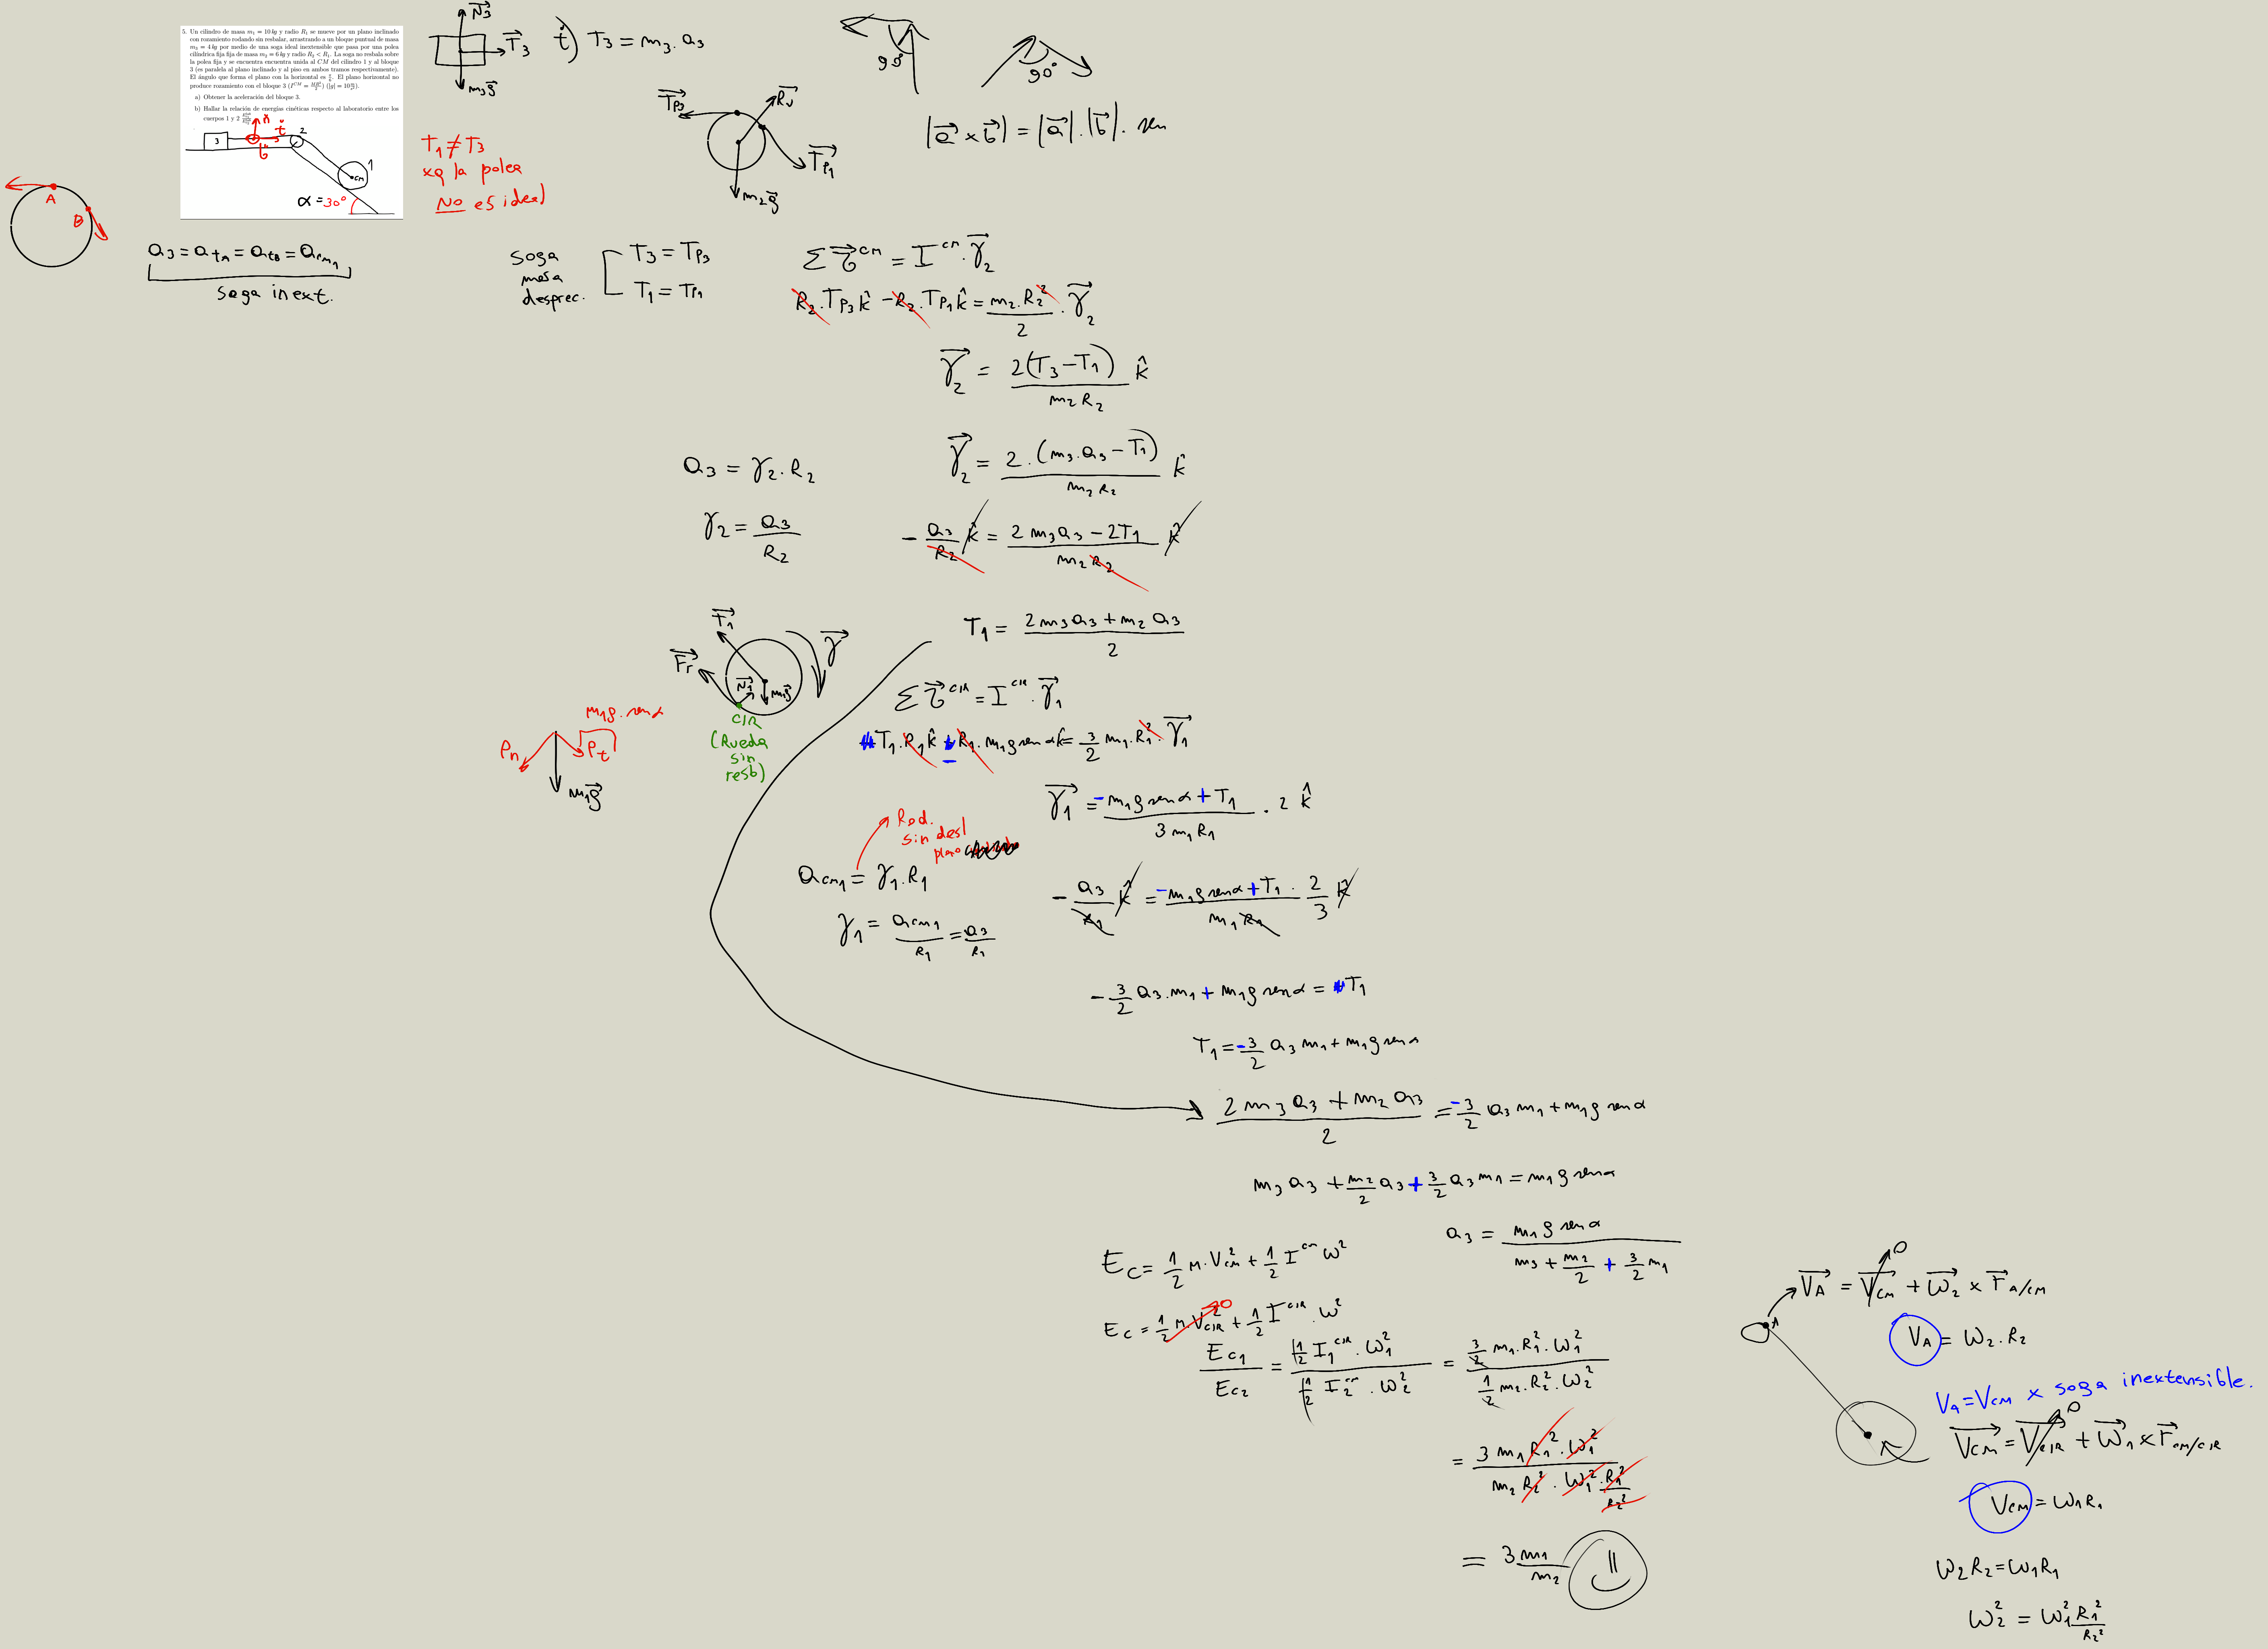 5. Un cilindro de masa m₁ = 10 kg y radio R₁ se mueve por un plano inclinado
con rozamiento rodando sin resbalar, arrastrando a un bloque puntual de masa
m₃ = 4 kg por medio de una soga ideal inextensible que pasa por una polea
cilíndrica fija fija de masa m₂ = 6 kg y radio R₂ < R₁. La soga no resbala sobre
la polea fija y se encuentra encuentra unida al CM del cilindro 1 y al bloque
3 (es paralela al plano inclinado y al piso en ambos tramos respectivamente).
El ángulo que forma el plano con la horizontal es
. El plano horizontal no
produce rozamiento con el bloque 3 (I^CM = MR²/2) (|g| = 10 m/s²).
a) Obtener la aceleración del bloque 3.
b) Hallar la relación de energías cinéticas respecto al laboratorio entre los
cuerpos 1 y 2
n
t
3
2
1
CM
α = 30°
N₃
T₃
m₃g
t) T₃ = m₃. a₃
90°
90°
|a x b| = |a|.|b|. sen
T₁ ≠ T₃
xq la polea
NO es ideal
Tp₃
Rv
Tp₁
m₂g
A
B
a₃ = a tA = a tB = a cm₁
soga inext.
soga
masa
desprec.
T₃ = Tp₃
T₁ = Tp₁
Σ τ^CM = I^CM . γ₂
R₂. Tp₃ k̂ - R₂. Tp₁ k̂ = m₂. R₂²/2 . γ₂
γ₂ = 2(T₃ - T₁)/m₂ R₂ k̂
a₃ = γ₂. R₂
γ₂ = 2.(m₃. a₃ - T₁)/m₂ R₂ k̂
γ₂ = a₃/R₂
- a₃/R₂ k̂ = 2 m₃ a₃ - 2T₁/m₂ R₂ k̂
T₁ = 2 m₃ a₃ + m₂ a₃/2
T₁
Fr
N₁
m₁g
γ
CIR
(Rueda
sin
resb)
m₁g. sen α
Pn
Pt
m₁g
Σ τ^CIR = I^CIR . γ₁
T₁. R₁ k̂ - R₁. m₁ g sen α k̂ = 3/2 m₁. R₁². γ₁
γ₁ = -m₁ g sen α + T₁/3 m₁ R₁ . 2 k̂
Rod.
sin desl
plano
a cm₁ = γ₁. R₁
γ₁ = a cm₁/R₁ = a₃/R₁
- a₃/R₁ k̂ = -m₁ g sen α + T₁/m₁ R₁ . 2/3 k̂
- 3/2 a₃. m₁ + m₁ g sen α = T₁
T₁ = -3/2 a₃ m₁ + m₁ g sen α
2 m₃ a₃ + m₂ a₃/2 = -3/2 a₃ m₁ + m₁ g sen α
m₃ a₃ + m₂/2 a₃ + 3/2 a₃ m₁ = m₁ g sen α
a₃ = m₁ g sen α/m₃ + m₂/2 + 3/2 m₁
Ec = 1/2 M. V²CM + 1/2 I^CM ω²
Ec = 1/2 M. V²CIR + 1/2 I^CIR . ω²
0
Ec₁/Ec₂ = 1/2 I₁^CIR . ω₁²/1/2 I₂^CM . ω₂² = 3/2 m₁. R₁². ω₁²/1/2 m₂. R₂². ω₂²
= 3 m₁ R₁². ω₁²/m₂ R₂². ω₁². R₁²/R₂²
= 3 m₁/m₂
A
VA = VCM + ω₂ x r A/CM
0
VA = ω₂. R₂
VA = VCM x soga inextensible.
VCM = VCIR + ω₁ x r CM/CIR
0
VCM = ω₁ R₁
ω₂ R₂ = ω₁ R₁
ω₂² = ω₁² R₁²/R₂²